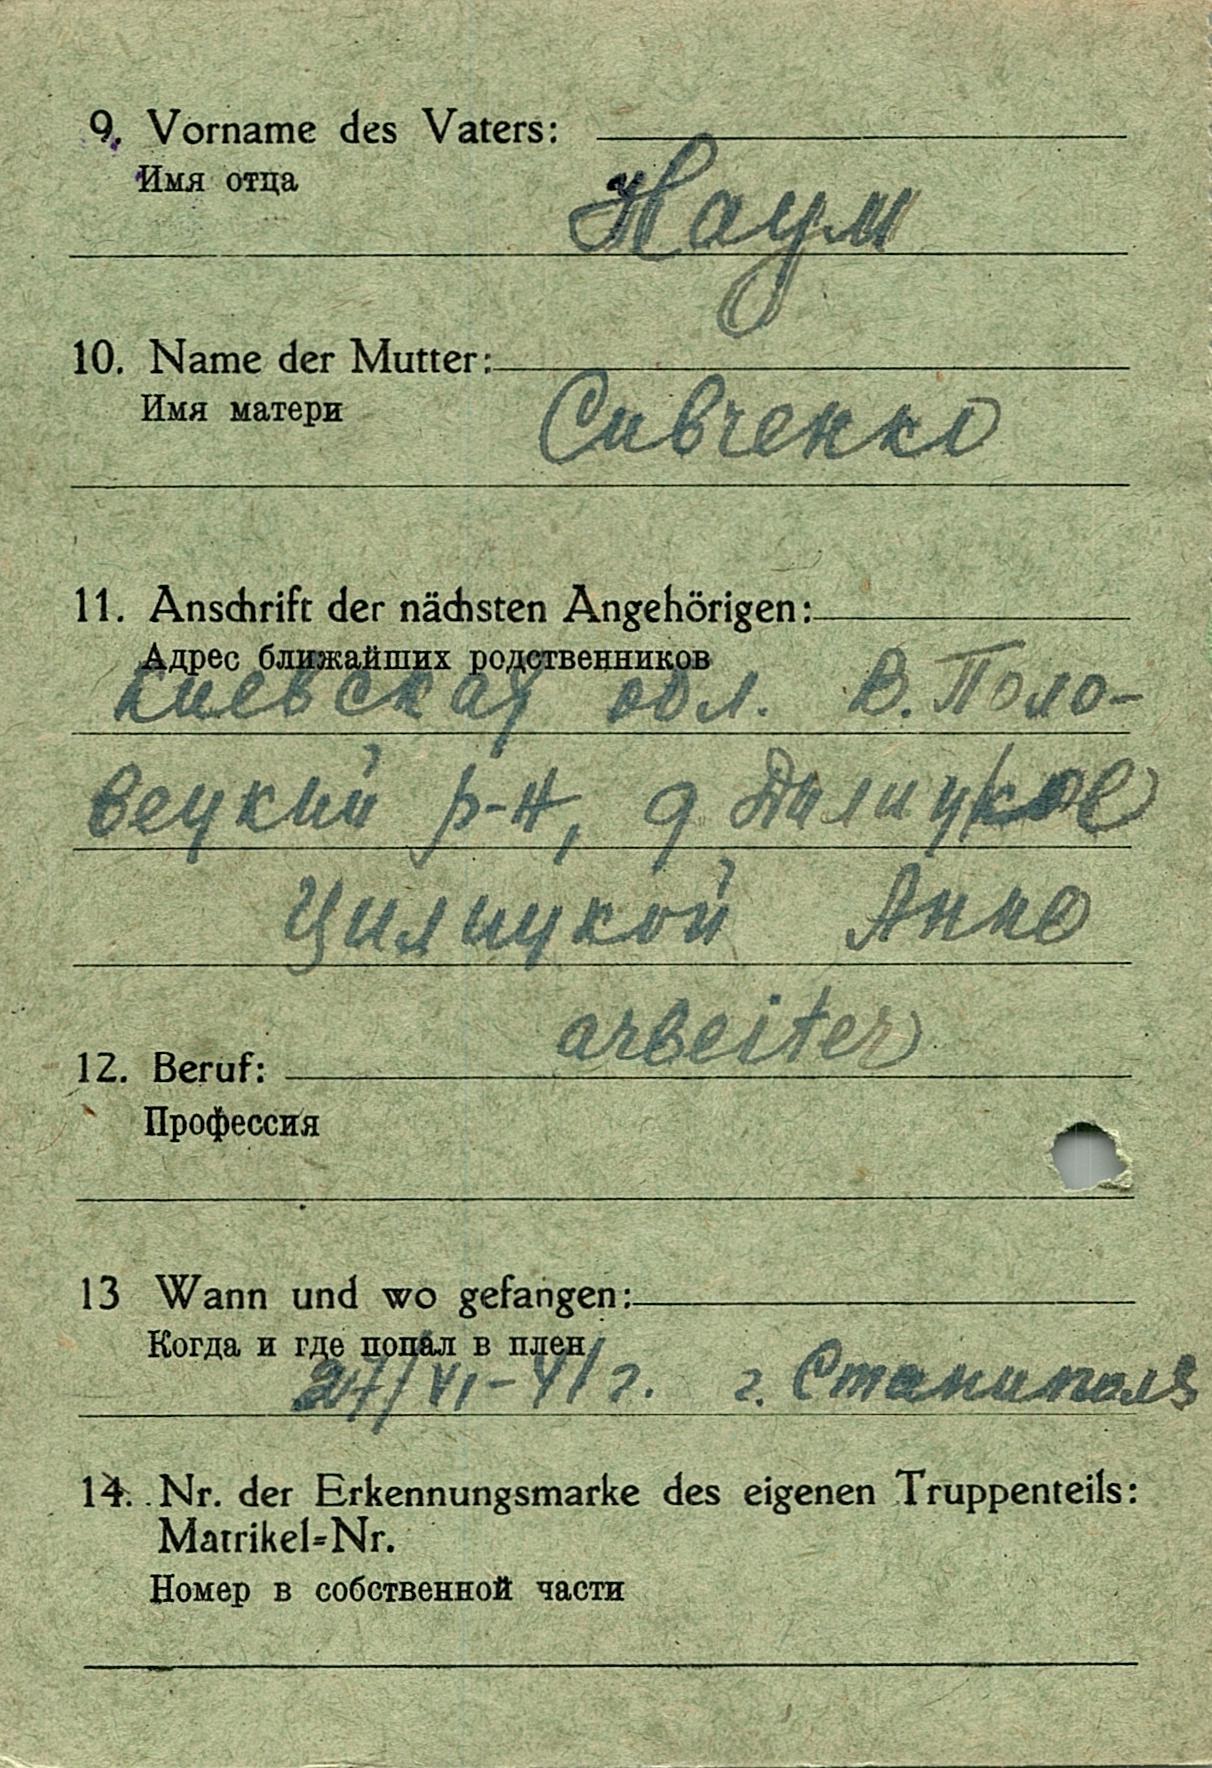 9. Vorname des Vaters:
Имя отца
Наум
10. Name der Mutter:
Имя матери
Сивченко
11. Anschrift der nächsten Angehörigen:
Адрес ближайших родственников
Киевская обл. В. Поло-
вецкий р-н, д
Цилицкой Анне
arbeiter
12. Beruf:
Профессия
13 Wann und wo gefangen:
Когда и где попал в плен
27/VI-41 г. г.
14. Nr. der Erkennungsmarke des eigenen Truppenteils:
Matrikel=Nr.
Номер в собственной части